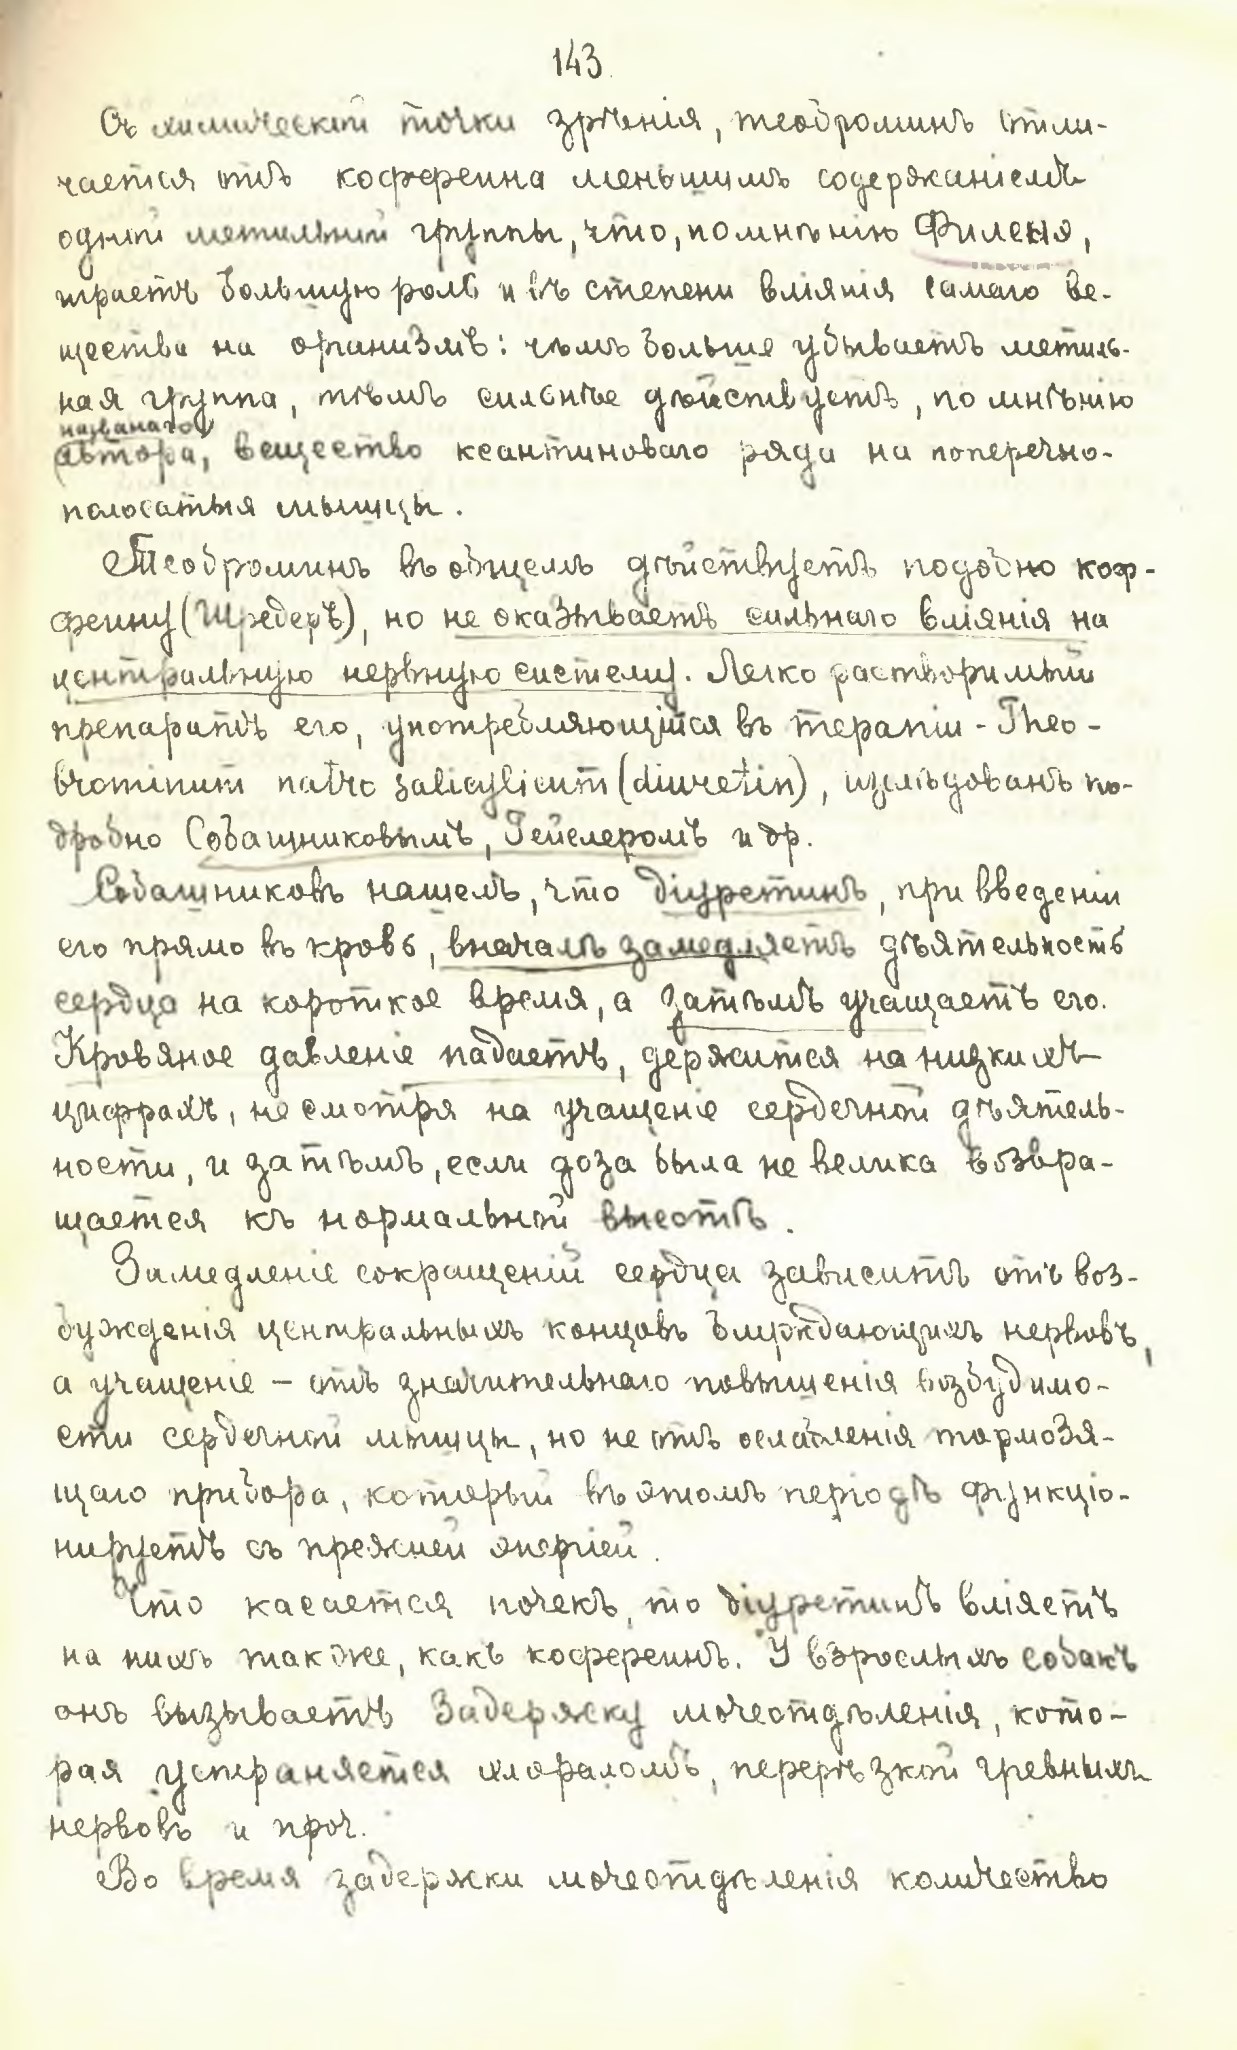 143
Съ химической точки зрѣнія, теоброминъ отли-
чается отъ коффеина меньшимъ содержаніемъ
одной метильной группы, что, по мнѣнію Филеня,
играетъ большую роль и въ степени вліянія самаго ве-
щества на организмъ: чѣмъ больше убываетъ метиль-
ная группа, тѣмъ сильнѣе дѣйствуетъ, по мнѣнію
названаго
автора, вещество ксантиноваго ряда на поперечно-
полосатыя мышцы.
Теоброминъ въ общемъ дѣйствуетъ подобно коф-
феину (Шредеръ), но не оказываетъ сильнаго вліянія на
центральную нервную систему. Легко растворимый
препаратъ его, употребляющійся въ терапіи - Theo-
brominum natro salicylicum (diuretin), изслѣдованъ по-
дробно Собашниковымъ, Гейслеромъ и др.
Собашниковъ нашелъ, что діуретинъ, при введеніи
его прямо въ кровь, вначалѣ замедляетъ дѣятельность
сердца на короткое время, а затѣмъ учащаетъ его.
Кровяное давленіе падаетъ, держится на низкихъ
цифрахъ, не смотря на учащеніе сердечной дѣятель-
ности, и затѣмъ, если доза была не велика возвра-
щается къ нормальной высотѣ.
Замедленіе сокращеній сердца зависитъ отъ воз-
бужденія центральныхъ концовъ блуждающихъ нервовъ,
а учащеніе – отъ значительнаго повышенія возбудимо-
сти сердечной мышцы, но не отъ ослабленія тормозя-
щаго прибора, который въ этомъ періодѣ функціо-
нируетъ съ прежней энергіей.
Что касается почекъ, то діуретинъ вліяетъ
на нихъ также, какъ кофеинъ. У взрослыхъ собакъ
онъ вызываетъ задержку мочеотдѣленія, кото-
рая устраняется хлораломъ, перерѣзкой чревныхъ
нервовъ и проч.
Во время задержки мочеотдѣленія количество